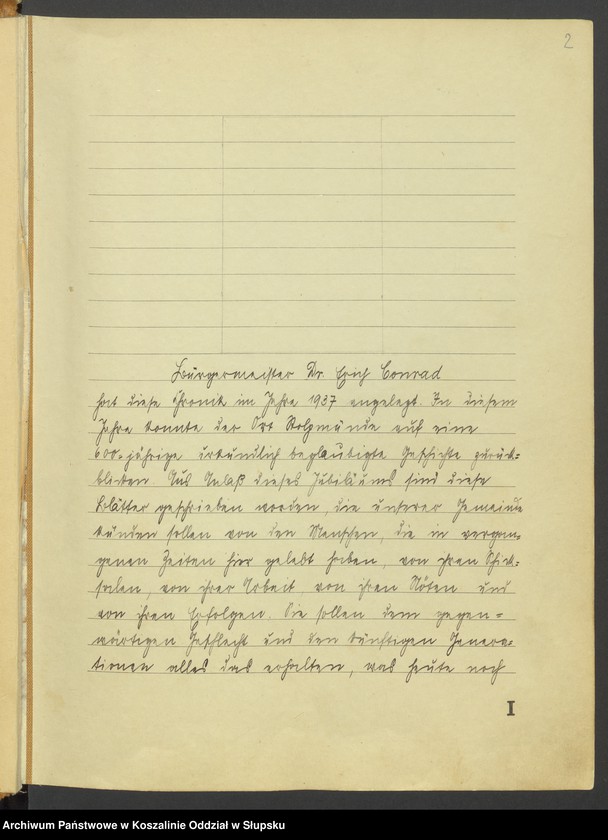 2
Bürgermeister Dr. Erich Conrad
hat diese Chronik im Jahre 1937 angelegt. In diesem
Jahre konnte der Ort Stolpmünde auf eine
600-jährige urkundlich beglaubigte Geschichte zurück-
blicken. Aus Anlaß dieses Jubiläums sind diese
Blätter geschrieben worden, die unserer Gemeinde
künden sollen von den Menschen, die in vergan-
genen Zeiten hier gelebt haben, von ihren Schick-
salen, von ihrer Arbeit, von ihren Nöten und
von ihren Erfolgen. Sie sollen dem gegen-
wärtigen Geschlecht und den künftigen Genera-
tionen alles das erhalten, was heute noch
I
Archiwum Państwowe w Koszalinie Oddział w Słupsku